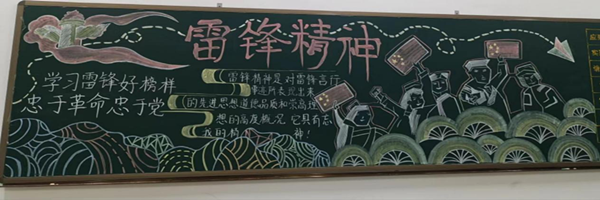 雷锋精神
学习雷锋好榜样
忠于革命忠于党
雷锋精神是对雷锋言行
事迹所表现出来
的先进思想道德品质和崇高理
想的高度概况 它具有忘
我的精
神!